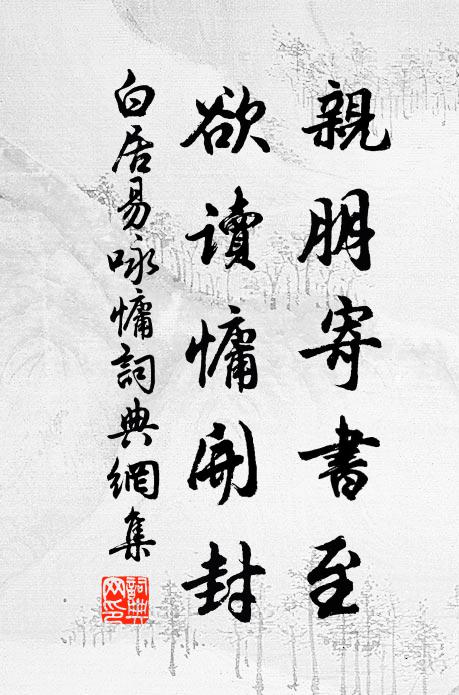 親朋寄書至
欲讀慵開封
白居易咏慵詞典網集
詞典网印